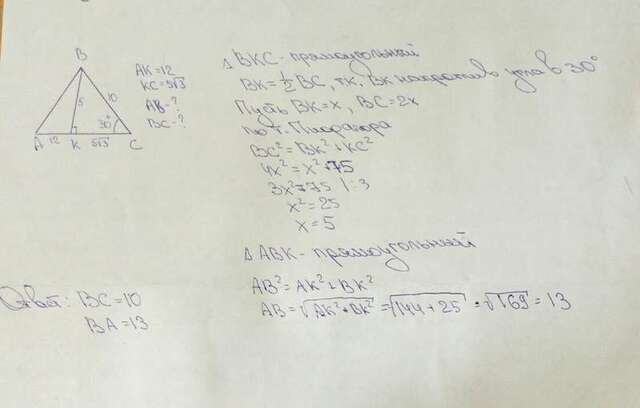 B
5
10
30°
A 12 K 5√3 C
AK=12
KC=5√3
AB-?
BC-?
△ BKC - прямоугольный
BK=½ BC, т.к. BK напротив угла в 30°
Пусть BK=x, BC=2x
по т. Пифагора
BC²=BK²+KC²
4x²=x²+75
3x²=75 |:3
x²=25
x=5
△ ABK - прямоугольный
AB²=AK²+BK²
AB=√AK²+BK²=√144+25=√169=13
Ответ: BC=10
BA=13